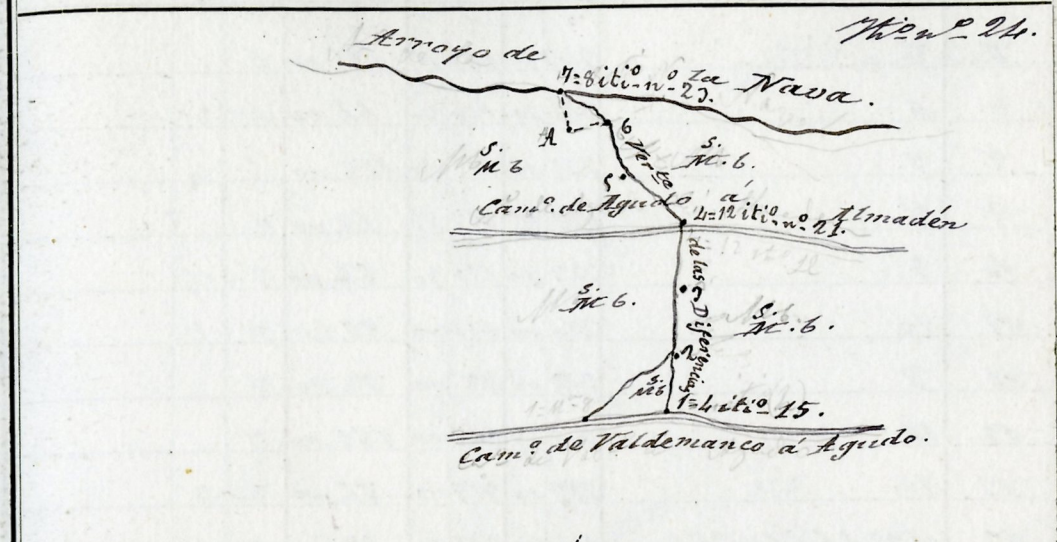 Itiº nº 24.
Arroyo de la Nava.
7=8 itiº nº 23.
A
6
S.
M 6
S.
M. 6.
5
Vertte
Camº. de Agudo á Almadén
4=12 itiº nº 21.
de las Diferencias
3
S.
M 6.
S.
M. 6.
2
S.
M 6
1=4 itiº 15.
Camº. de Valdemanco á Agudo.